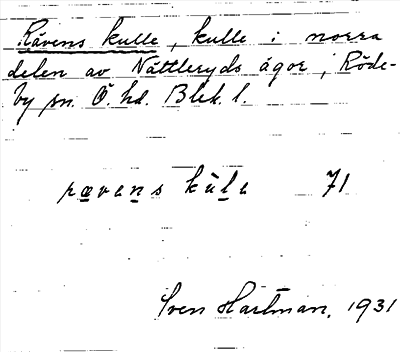 Rävens kulle, kulle i norra
delen av Nättleryds ägor, Röde-
by sn. Ö. hd. Blek. l.
rævens kùle 71
Sven Hartman, 1931